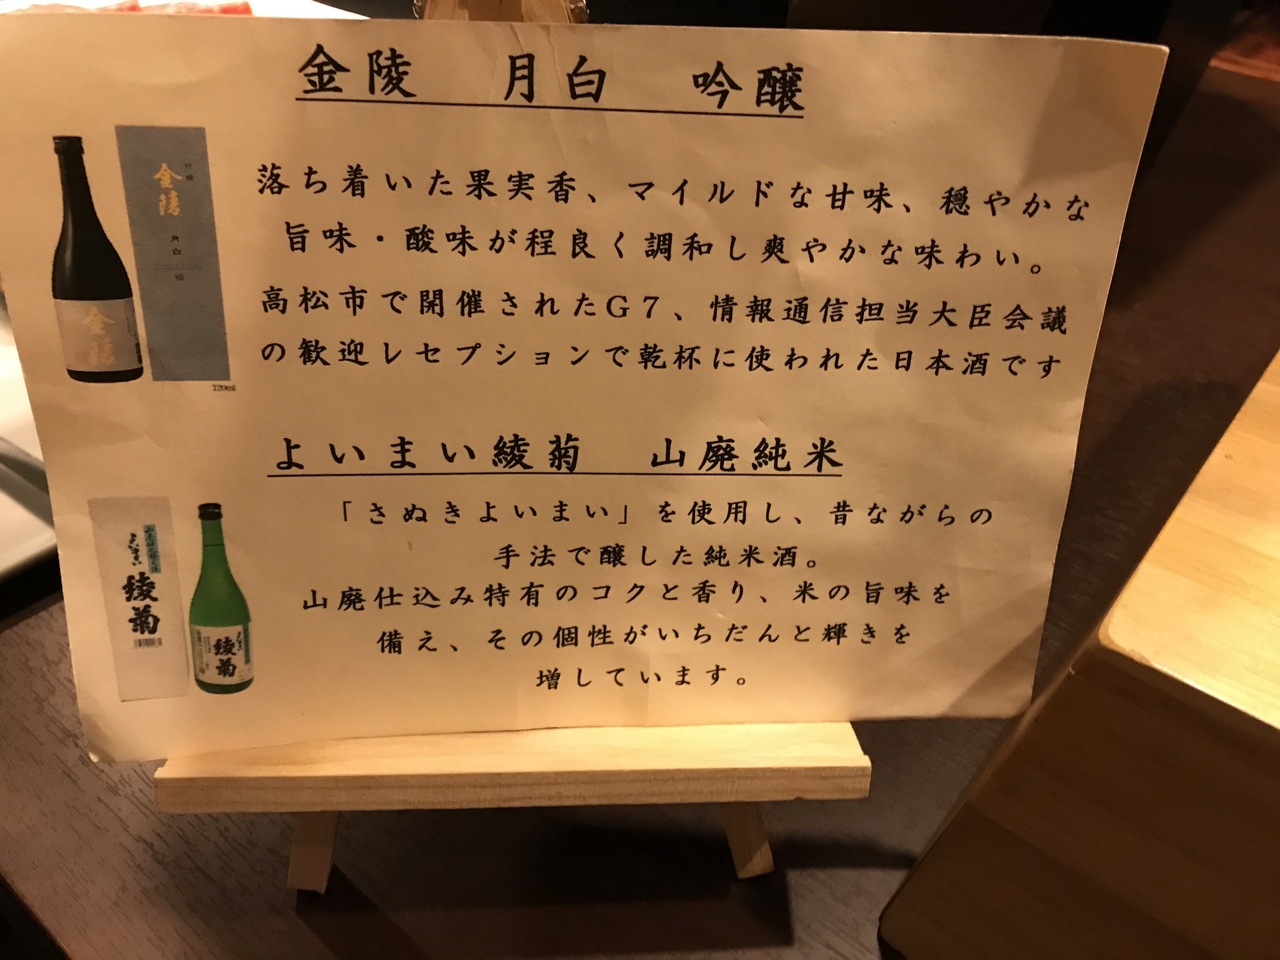 金陵　月白　吟醸
落ち着いた果実香、マイルドな甘味、穏やかな
旨味・酸味が程良く調和し爽やかな味わい。
高松市で開催されたG7、情報通信担当大臣会議
の歓迎レセプションで乾杯に使われた日本酒です
金陵
月白
金陵
720ml
よいまい綾菊　山廃純米
「さぬきよいまい」を使用し、昔ながらの
手法で醸した純米酒。
山廃仕込み特有のコクと香り、米の旨味を
備え、その個性がいちだんと輝きを
増しています。
よいまい
綾菊
よいまい
綾菊